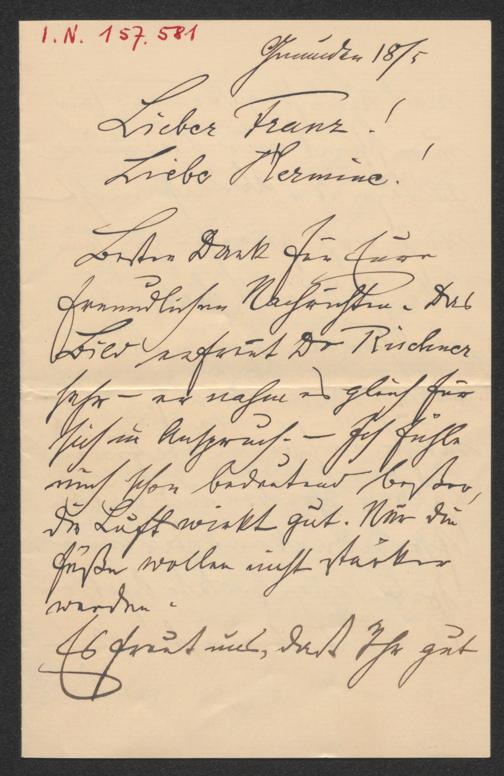 I. N. 157.581
Gmunden 18/5
Lieber Franz!
Liebe Hermine!
Besten Dank für Eure
freundlichen Nachrichten. Das
Bild erfreut Dr
sehr – er nahm es gleich für
sich in Anspruch. – Ich fühle
mich schon bedeutend besser,
die Luft wirkt gut. Nur die
Füße wollen nicht stärker
werden.
Es freut uns, daß Ihr gut